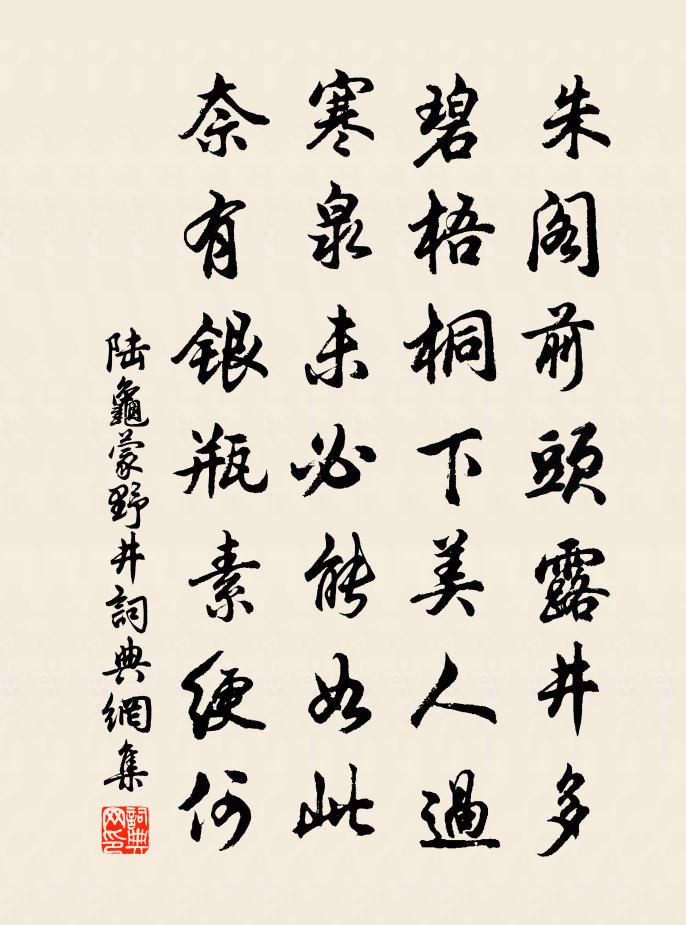 朱阁前頭露井多
碧梧桐下美人過
寒泉未必能如此
奈有银瓶素绠何
陆龜蒙野井詞典網集
詞典网印